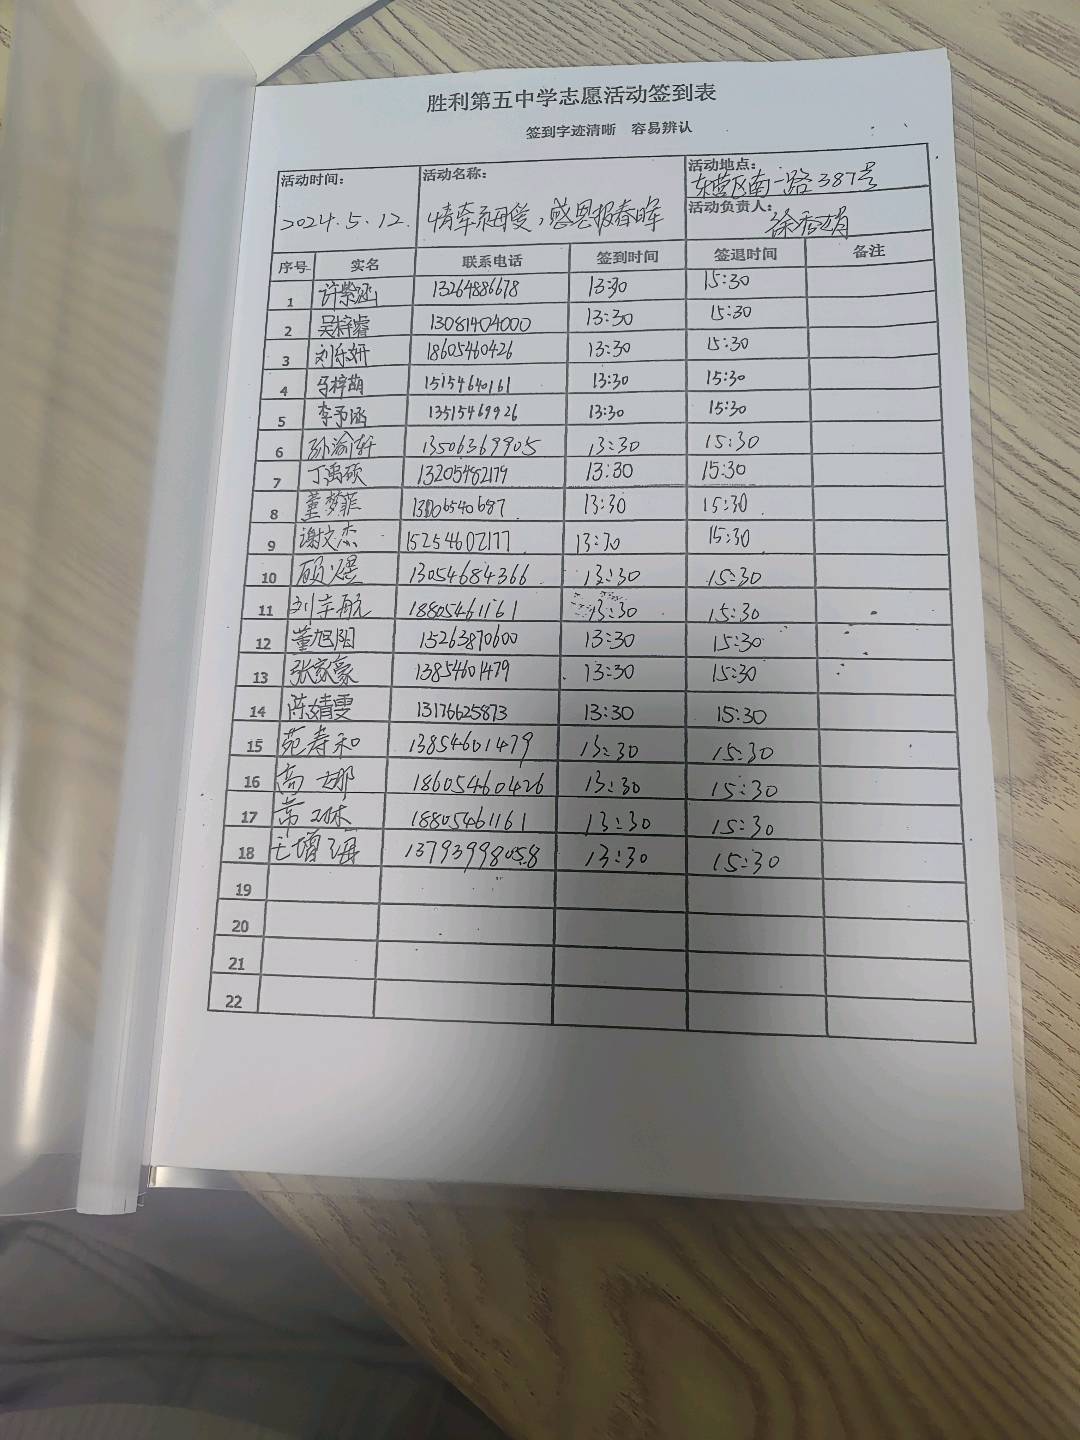 胜利第五中学志愿活动签到表
签到字迹清晰 容易辨认
活动时间: 活动名称: 活动地点:
东营区南一路387号
2024.5.12. 情牵系母爱,感恩报春晖 活动负责人:
徐秀娟
序号 实名 联系电话 签到时间 签退时间 备注
1 许紫涵 13264886678 13:30 15:30
2 吴梓睿 13081404000 13:30 15:30
3 刘乐妍 18605460426 13:30 15:30
4 马梓萌 15154640161 13:30 15:30
5 李予涵 13515469926 13:30 15:30
6 孙渝轩 13506369905 13:30 15:30
7 丁禹硕 13205482179 13:30 15:30
8 董梦菲 13:30 15:30
9 谢文杰 15254602177 13:30 15:30
10 顾煜 13054684366 13:30 15:30
11 刘宇航 18805461161 13:30 15:30
12 董旭阳 15263870600 13:30 15:30
13 张家豪 13854601479 13:30 15:30
14 陈婧雯 13176625873 13:30 15:30
15 苑寿和 13854601479 13:30 15:30
16 高娜 18605460426 13:30 15:30
17 常琳 18805461161 13:30 15:30
18 王增海 13793998058 13:30 15:30
19
20
21
22